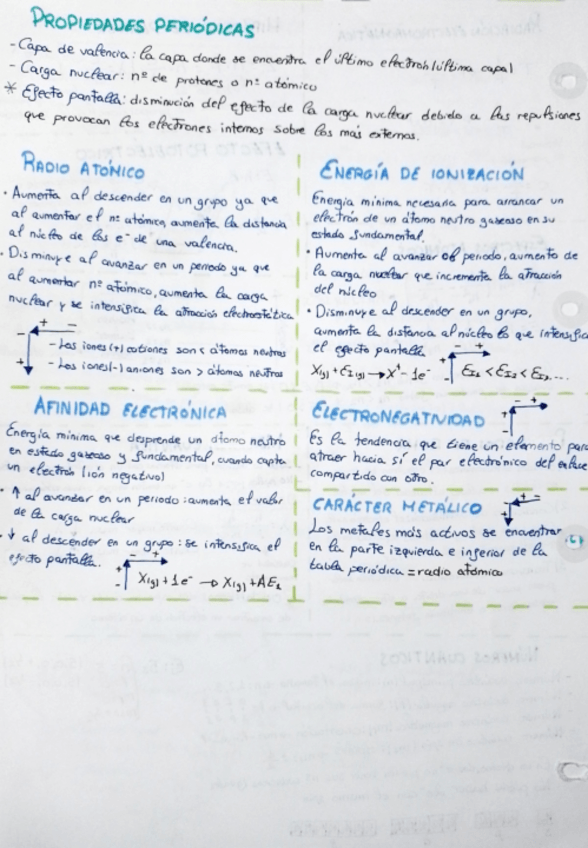 PROPIEDADES PERIÓDICAS
- Capa de valencia: la capa donde se encuentra el último electrón (última capa)
- Carga nuclear: nº de protones o nº atómico
* Efecto pantalla: disminución del efecto de la carga nuclear debido a las repulsiones
que provocan los electrones internos sobre los más externos.
RADIO ATÓMICO
· Aumenta al descender en un grupo ya que
al aumentar el nº atómico, aumenta la distancia
al núcleo de los e⁻ de una valencia.
· Disminuye al avanzar en un periodo ya que
al aumentar nº atómico, aumenta la carga
nuclear y se intensifica la atracción electrostática
+ -
- Los iones (+) cationes son < átomos neutros
+ - Los iones (-) aniones son > átomos neutros
ENERGÍA DE IONIZACIÓN
Energía mínima necesaria para arrancar un
electrón de un átomo neutro gaseoso en su
estado fundamental.
· Aumenta al avanzar el periodo, aumento de
la carga nuclear que incrementa la atracción
del núcleo
· Disminuye al descender en un grupo,
aumenta la distancia al núcleo lo que intensifica
el efecto pantalla + - +
X(g) + EI(g) → X⁺ - 1e⁻ - EI₁ < EI₂ < EI₃...
AFINIDAD ELECTRÓNICA
Energía mínima que desprende un átomo neutro
en estado gaseoso y fundamental, cuando capta
un electrón (ión negativo)
· ↑ al avanzar en un periodo: aumenta el valor
de la carga nuclear
· ↓ al descender en un grupo: se intensifica el
efecto pantalla. + - +
- X(g) + 1e⁻ → X(g) + AE₁
ELECTRONEGATIVIDAD + - +
-
Es la tendencia que tiene un elemento para
atraer hacia sí el par electrónico del enlace
compartido con otro.
CARÁCTER METÁLICO + -
+
Los metales más activos se encuentran
en la parte izquierda e inferior de la
tabla periódica = radio atómico